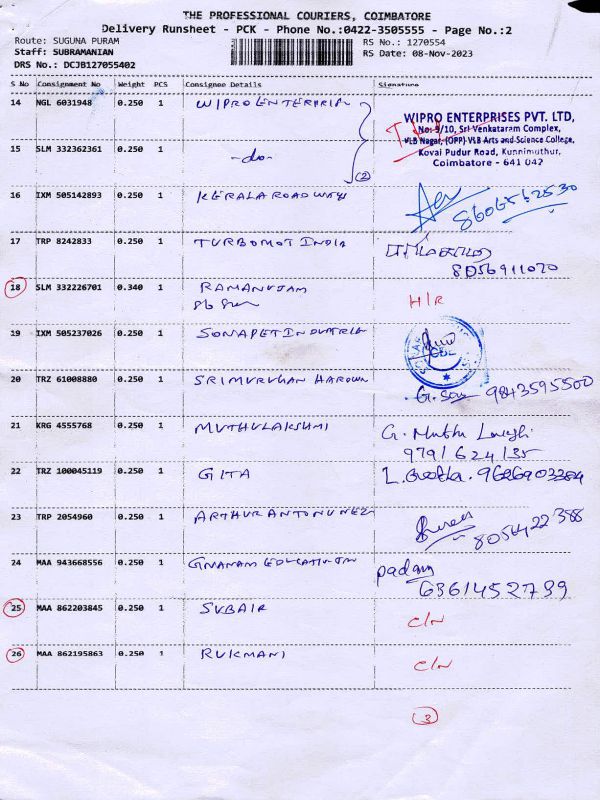 THE PROFESSIONAL COURIERS, COIMBATORE
Delivery Runsheet - PCK - Phone No.:0422-3505555 - Page No.:2
Route: SUGUNA PURAM
RS No.: 1270554
Staff: SUBRAMANIAN
RS Date: 08-Nov-2023
DRS No.: DCJB127055402
S No Consignment No Weight PCS Consignee Details Signature
14 NGL 6031948 0.250 1 WIPRO
WIPRO ENTERPRISES PVT. LTD,
No: 9/10, Sri Venkataram Complex,
VLB Nagar, (OPP) VLB Arts and Science College,
Kovai Pudur Road, Kunnimuthur,
Coimbatore - 641 042
15 SLM 332362361 0.250 1 -do-
(2)
16 IXM 505142893 0.250 1 KERALA ROADWAYS
8606562530
17 TRP 8242833 0.250 1 TURBOMOT INDIA
8056911020
18 SLM 332226701 0.340 1 RAMANUJAM
H/R
19 IXM 505237026 0.250 1
20 TRZ 61008880 0.250 1 SRI MURUGAN
9843595500
21 KRG 4555768 0.250 1 MUTHULAKSHMI
9791624135
22 TRZ 100045119 0.250 1 GITA
23 TRP 2054960 0.250 1 ARTHUR ANTONUNEZ
24 MAA 943668556 0.250 1 GNANAM
padam
25 MAA 862203845 0.250 1 SUBAIR C/N
26 MAA 862195863 0.250 1 RUKMANI C/N
3